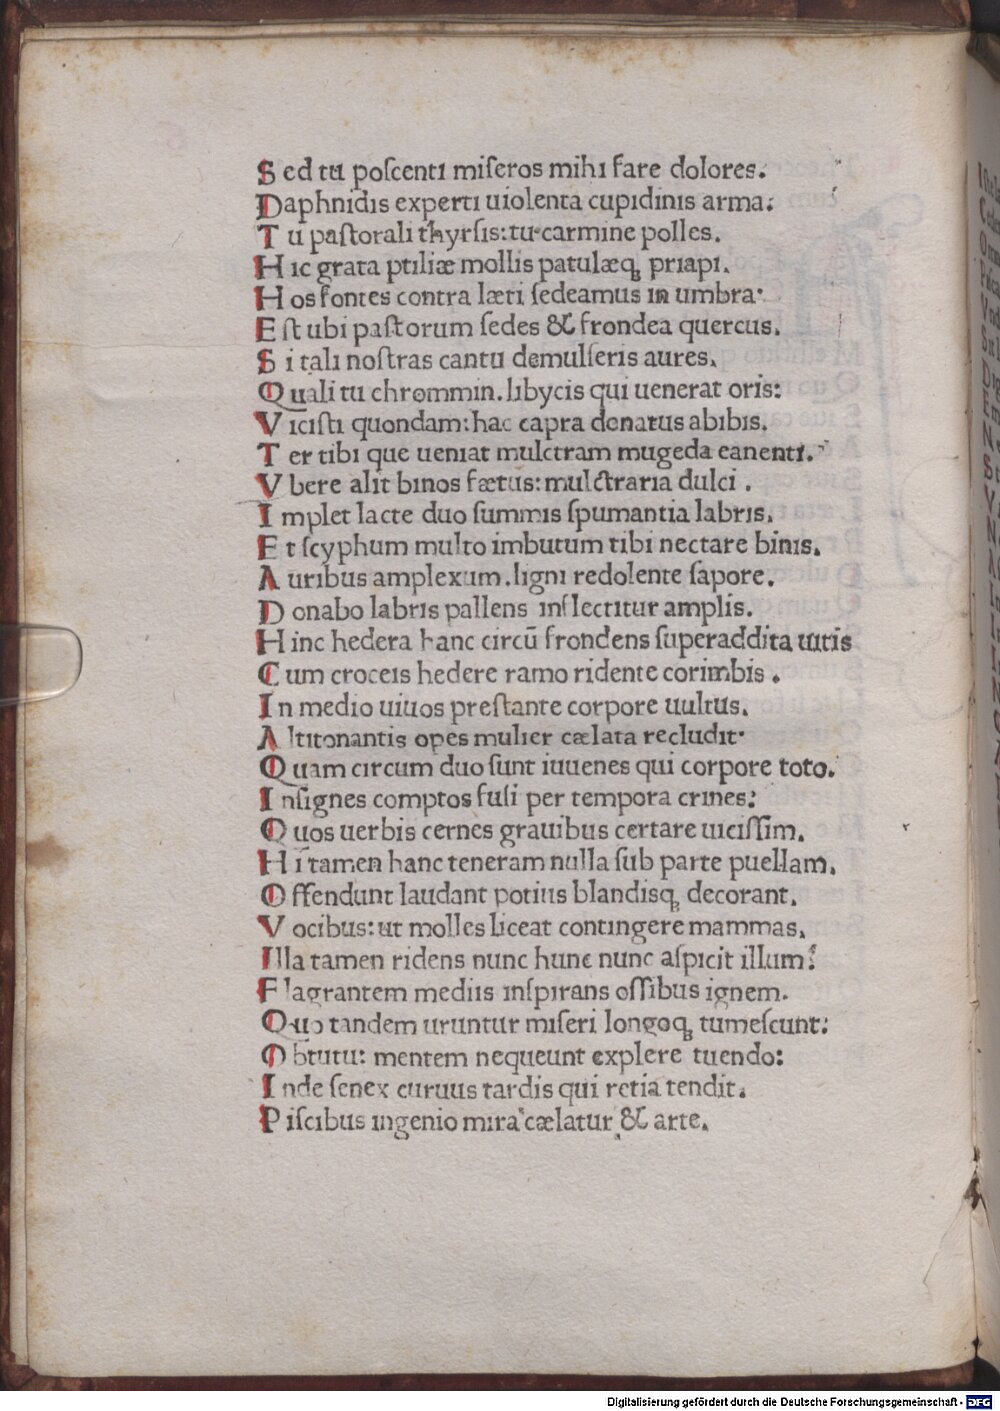 S ed tu poſcenti miſeros mihi fare dolores.
Daphnidis experti uiolenta cupidinis arma:
T u paſtorali thyrſis: tu carmine polles.
H ic grata ptiliæ mollis patulæqꝫ priapi.
H os fontes contra læti ſedeamus in umbra·
E ſt ubi paſtorum ſedes & frondea quercus.
S i tali noſtras cantu demulſeris aures.
Quali tu chrommin. libycis qui uenerat oris:
V iciſti quondam: hac capra donatus abibis.
T er tibi que ueniat mulctram mugeda eanenti.
V bere alit binos fætus: mulctraria dulci .
I mplet lacte duo ſummis ſpumantia labris.
E t ſcyphum multo imbutum tibi nectare binis.
A uribus amplexum. ligni redolente ſapore.
D onabo labris pallens inflectitur amplis.
H inc hedera hanc circū frondens ſuperaddita uitis
C um croceis hedere ramo ridente corimbis .
I n medio uiuos preſtante corpore uultus.
A ltitonantis opes mulier cælata recludit·
Quam circum duo ſunt iuuenes qui corpore toto.
I nſignes comptos fuſi per tempora crines:
Q uos uerbis cernes grauibus certare uiciſſim.
H i tamen hanc teneram nulla ſub parte puellam.
O ffendunt laudant potius blandisqꝫ decorant.
V ocibus: ut molles liceat contingere mammas.
Illa tamen ridens nunc hunc nunc aſpicit illum:
F lagrantem mediis inſpirans oſſibus ignem.
Quo tandem uruntur miſeri longoqꝫ tumeſcunt:
O btutu: mentem nequeunt explere tuendo:
I nde ſenex curuus tardis qui retia tendit.
P iſcibus ingenio mira cælatur & arte.
Digitalisierung gefördert durch die Deutsche Forschungsgemeinschaft - DFG